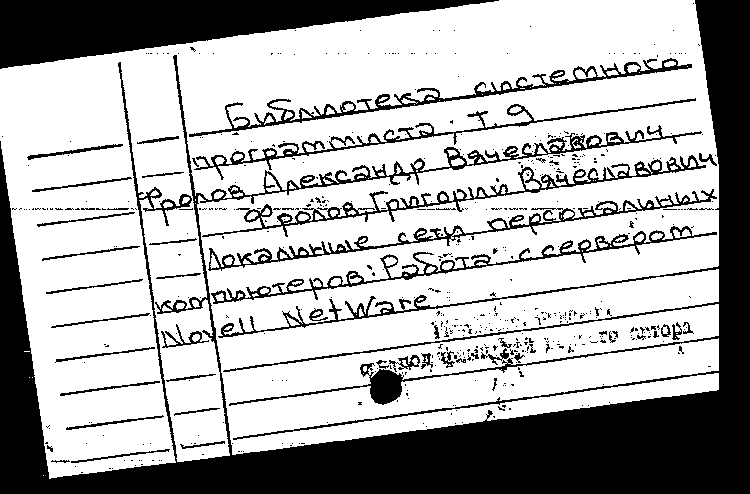 Библиотека системного
программиста; т. 9
Фролов, Александр Вячеславович,
Фролов, Григорий Вячеславович
Локальные сети персональных
компьютеров: Работа с сервером
Novell NetWare
под автора